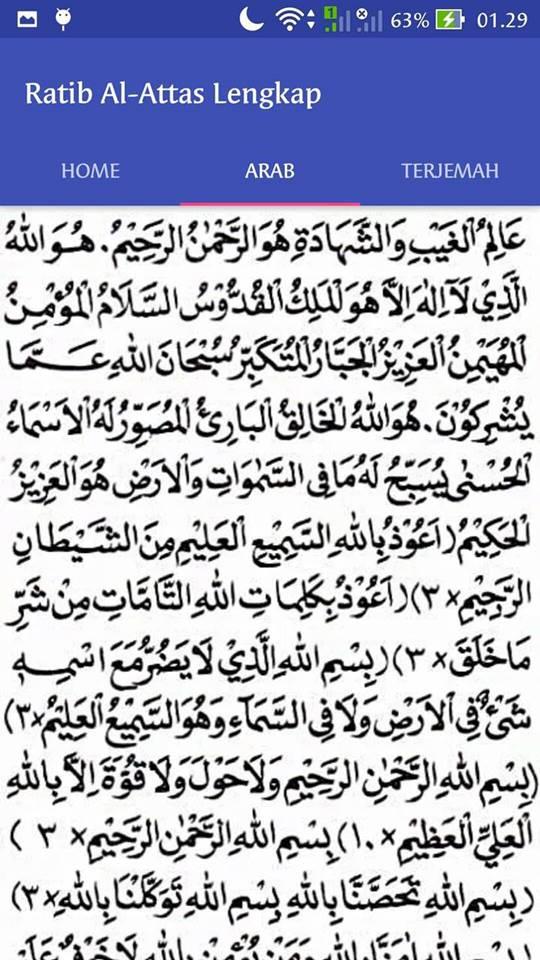 63% 01.29
Ratib Al-Attas Lengkap
HOME ARAB TERJEMAH
عَالِمُ الْغَيْبِ وَالشَّهَادَةِ هُوَ الرَّحْمٰنُ الرَّحِيْمُ. هُوَ اللهُ
الَّذِيْ لَآ اِلٰهَ اِلَّا هُوَ الْمَلِكُ الْقُدُّوْسُ السَّلَامُ الْمُؤْمِنُ
الْمُهَيْمِنُ الْعَزِيْزُ الْجَبَّارُ الْمُتَكَبِّرُ سُبْحَانَ اللهِ عَمَّا
يُشْرِكُوْنَ. هُوَ اللهُ الْخَالِقُ الْبَارِئُ الْمُصَوِّرُ لَهُ الْاَسْمَاءُ
الْحُسْنٰى يُسَبِّحُ لَهُ مَا فِى السَّمٰوَاتِ وَالْاَرْضِ هُوَ الْعَزِيْزُ
الْحَكِيْمُ (اَعُوْذُ بِاللهِ السَّمِيْعِ الْعَلِيْمِ مِنَ الشَّيْطَانِ
الرَّجِيْمِ × ٣) (اَعُوْذُ بِكَلِمَاتِ اللهِ التَّامَّاتِ مِنْ شَرِّ
مَا خَلَقَ × ٣) (بِسْمِ اللهِ الَّذِيْ لَا يَضُرُّ مَعَ اسْمِهِ
شَيْءٌ فِي الْاَرْضِ وَلَا فِى السَّمَآءِ وَهُوَ السَّمِيْعُ الْعَلِيْمُ × ٣)
(بِسْمِ اللهِ الرَّحْمٰنِ الرَّحِيْمِ وَلَا حَوْلَ وَلَا قُوَّةَ اِلَّا بِاللهِ
الْعَلِيِّ الْعَظِيْمِ × ١٠) بِسْمِ اللهِ الرَّحْمٰنِ الرَّحِيْمِ × ٣ )
(بِسْمِ اللهِ تَحَصَّنَّا بِاللهِ بِسْمِ اللهِ تَوَكَّلْنَا بِاللهِ × ٣)